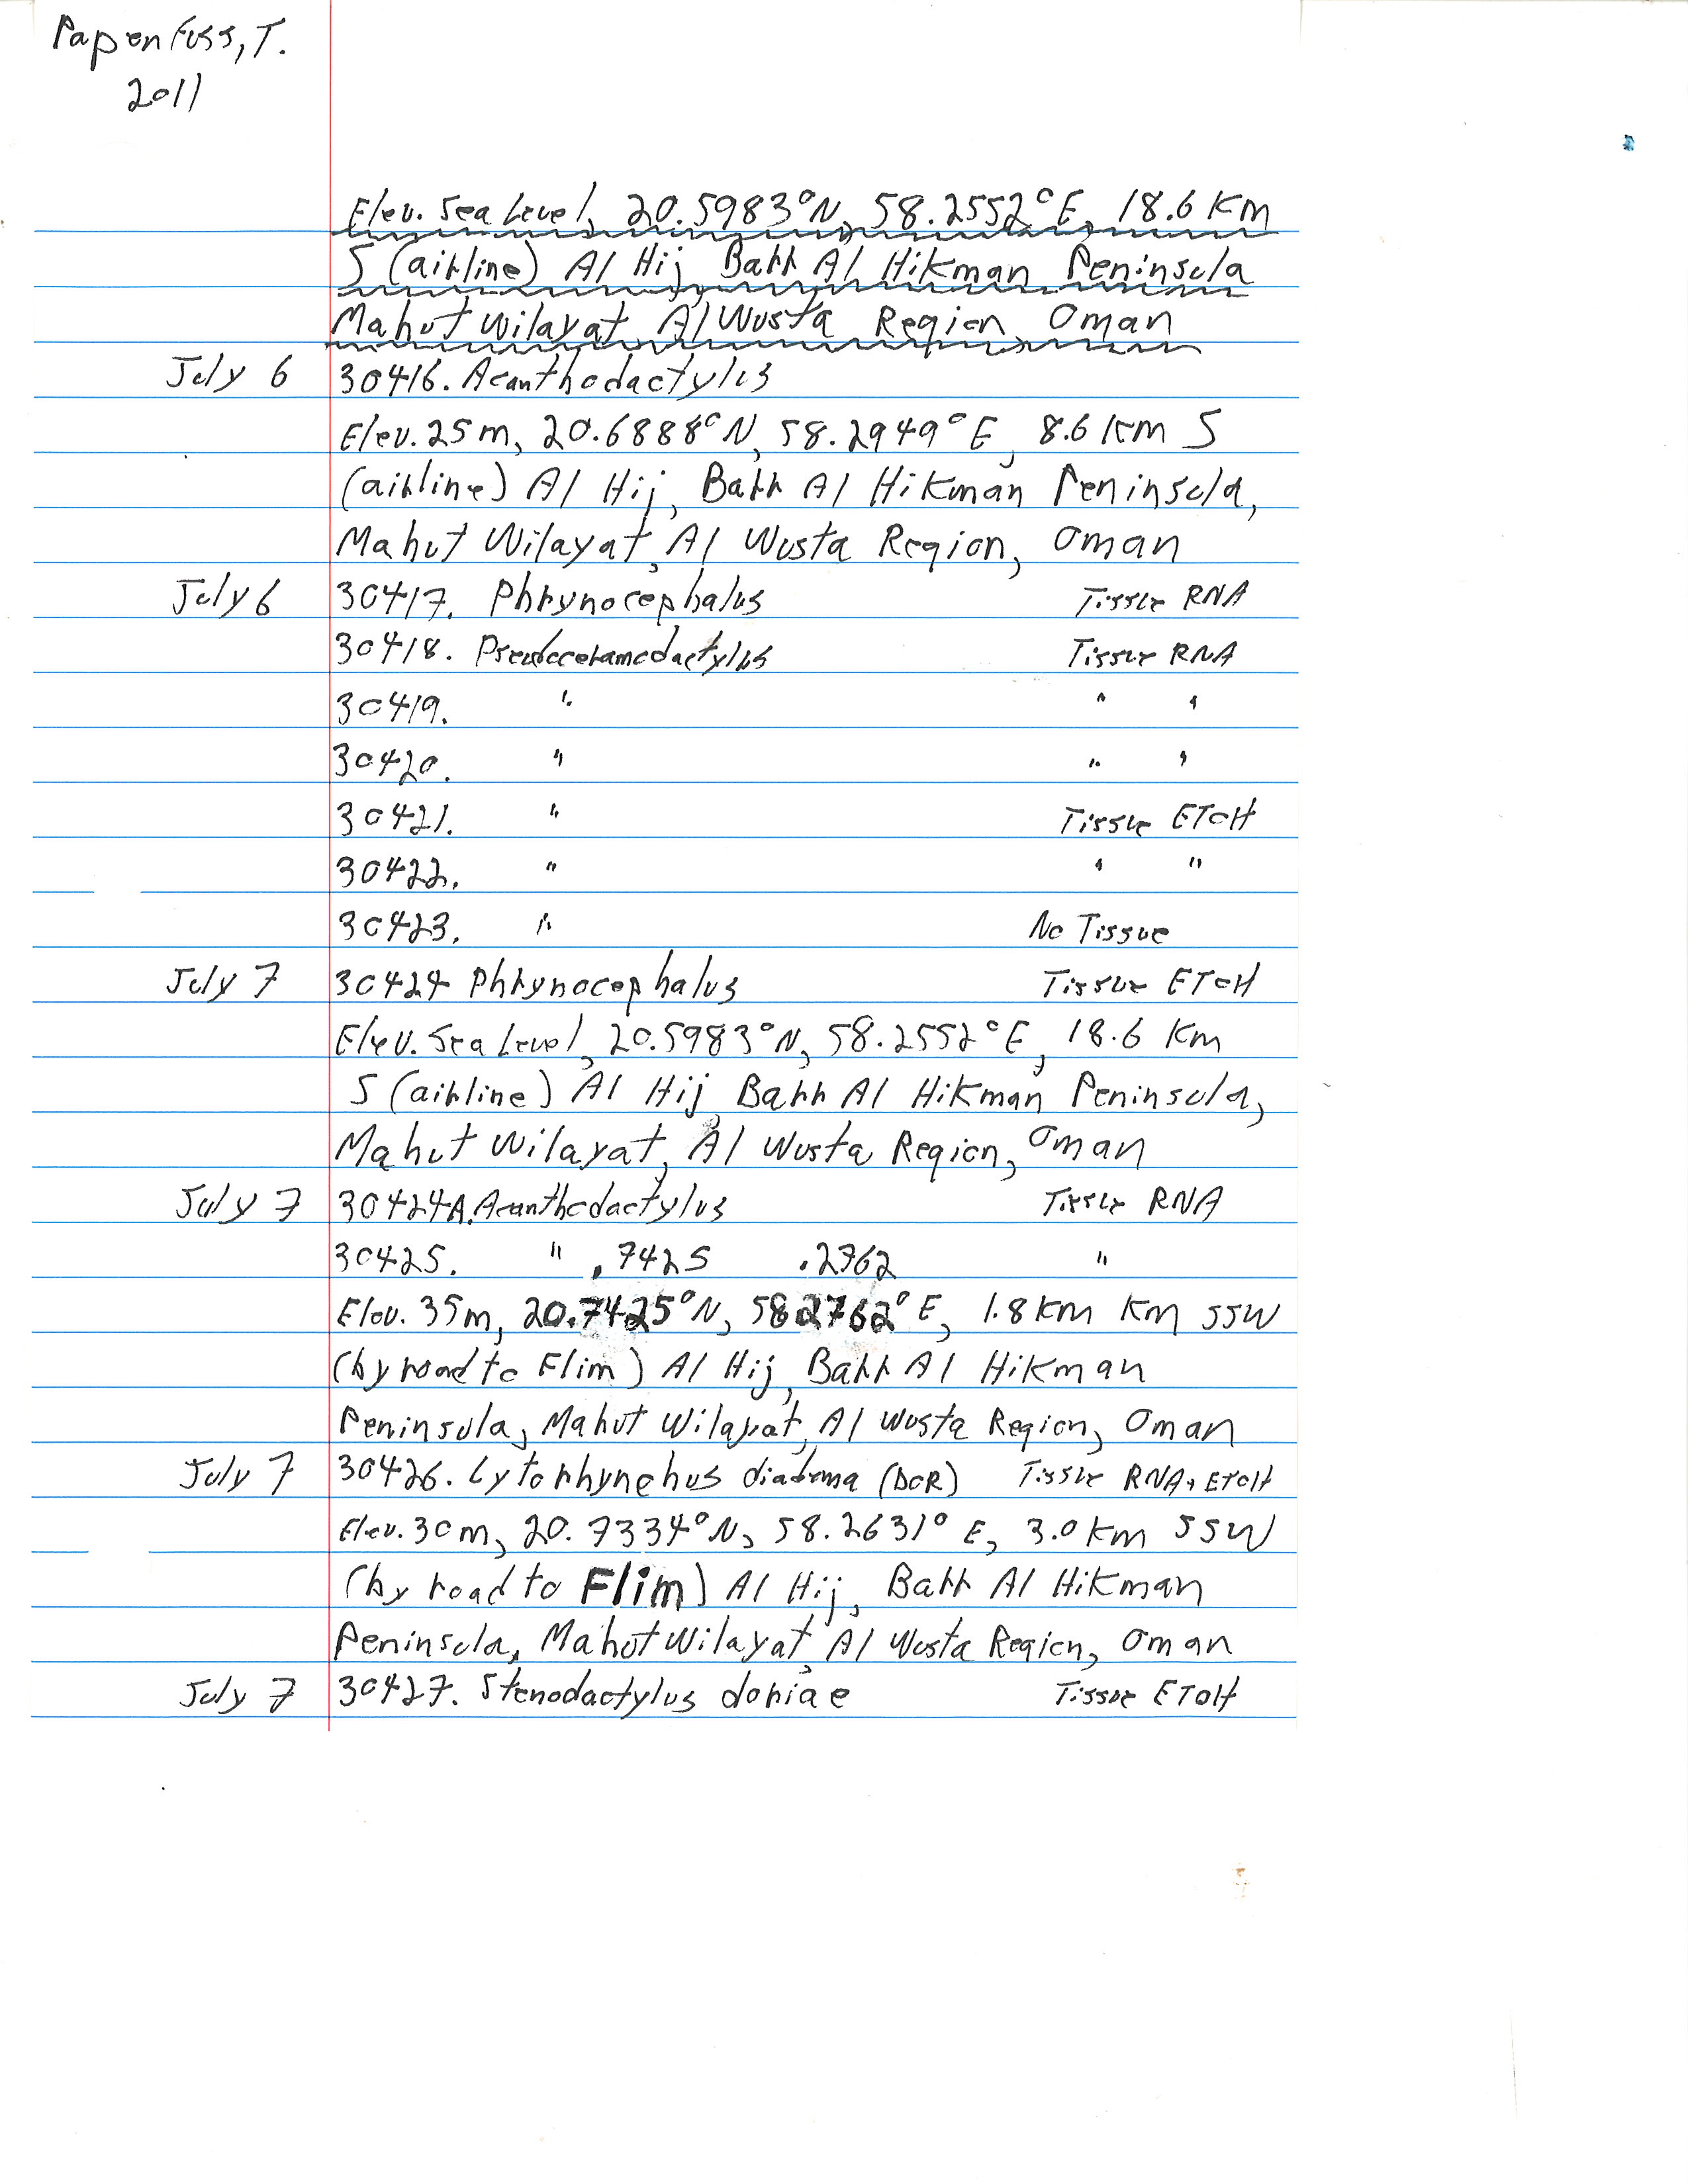 Papenfuss, T.
2011
Elev. Sea Level, 20.5983°N, 58.2552°E, 18.6 Km
S (airline) Al Hij, Barr Al Hikman Peninsula
Mahut Wilayat, Al Wusta Region, Oman
July 6 30416. Acanthodactylus
Elev. 25m, 20.6888°N, 58.2949°E, 8.6 Km S
(airline) Al Hij, Barr Al Hikman Peninsula,
Mahut Wilayat, Al Wusta Region, Oman
July 6 30417. Phrynocephalus Tissue RNA
30418. Pseudoceramodactylus Tissue RNA
30419. " " "
30420. " " "
30421. " Tissue ETOH
30422. " " "
30423. " No Tissue
July 7 30424 Phrynocephalus Tissue ETOH
Elev. Sea Level, 20.5983°N, 58.2552°E, 18.6 Km
S (airline) Al Hij, Barr Al Hikman Peninsula,
Mahut Wilayat, Al Wusta Region, Oman
July 7 30424A. Acanthodactylus Tissue RNA
30425. " .7425 .2762 "
Elev. 35m, 20.7425°N, 58.2762°E, 1.8 Km Km SSW
(by road to Flim) Al Hij, Barr Al Hikman
Peninsula, Mahut Wilayat, Al Wusta Region, Oman
July 7 30426. Lytorhynchus diadema (DOR) Tissue RNA, ETOH
Elev. 30m, 20.7334°N, 58.2631°E, 3.0 Km SSW
(by road to Flim) Al Hij, Barr Al Hikman
Peninsula, Mahut Wilayat, Al Wusta Region, Oman
July 7 30427. Stenodactylus doriae Tissue ETOH